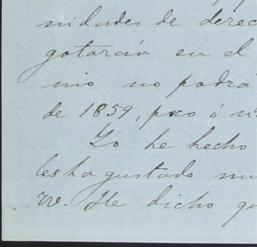 nidades de derec
gotarán en el
nio no podrá
de 1859, poco ó
Yo he hecho
les ha gustado mu
He dicho qu